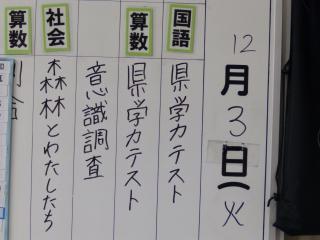 12月3日(火
国語
県学力テスト
算数
県学力テスト
意識調査
社会
森林とわたしたち
算数